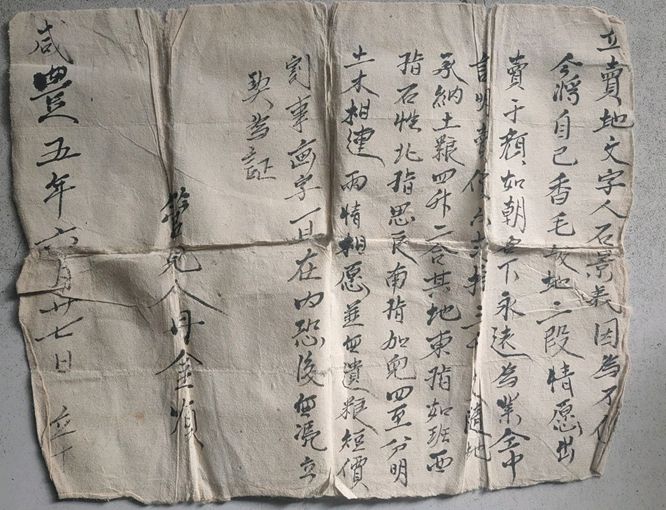 立賣地文字人石景義因為不便
今将自己香毛坡地二段情愿出
賣于顏如朝名下永遠為業仝中
言明賣價 隨地
承納土粮四升二合其地東指如班西
指石性北指思良南指如兒四至分明
土木相連兩情相愿並無遺粮短價
割事画字一㒲在内恐後無凭立
契為証
管見人母金 
咸豐五年六月廿七日 立